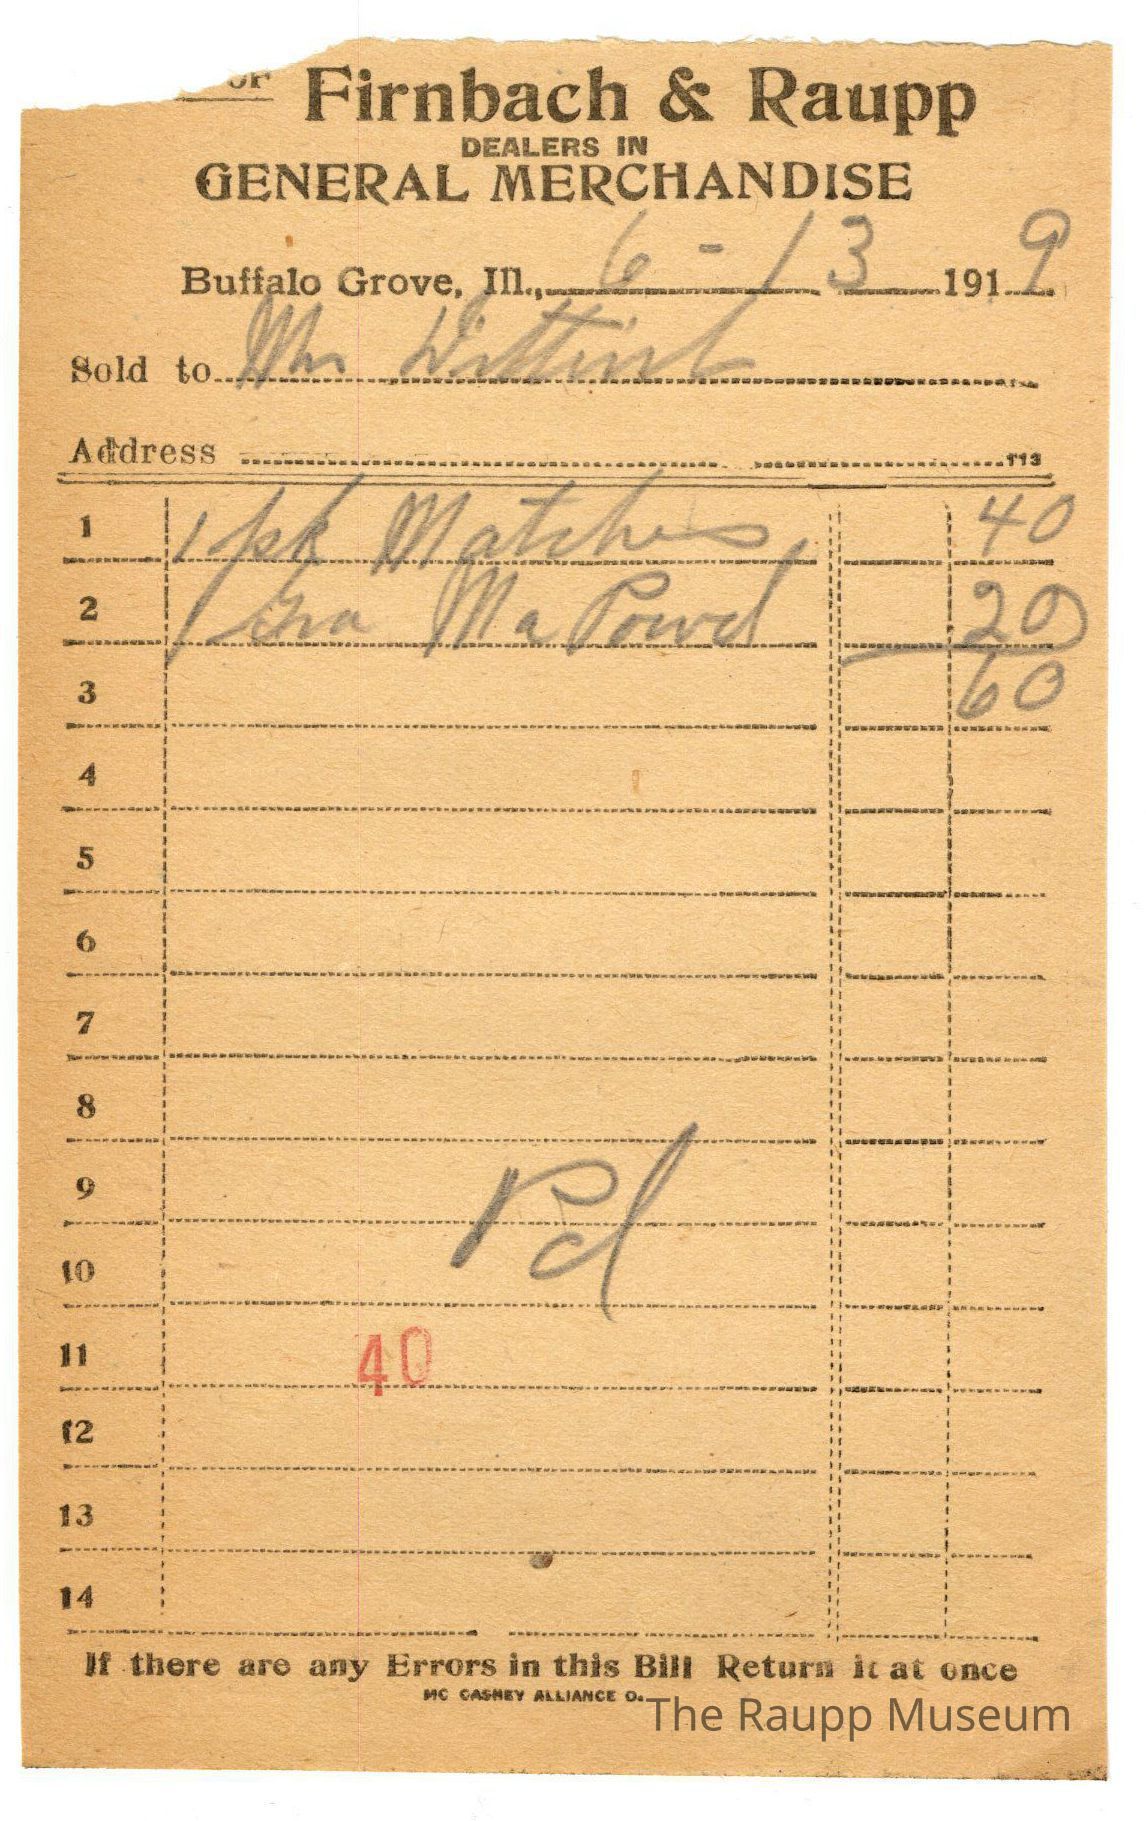 OF Firnbach & Raupp
DEALERS IN
GENERAL MERCHANDISE
Buffalo Grove, Ill., 6-13 1919
Sold to
Address 113
1 1 pk Matches 40
2 1 Powd 20
3 60
4
5
6
7
8
9 Pd
10
11 40
12
13
14
If there are any Errors in this Bill Return it at once
MC CASKEY ALLIANCE O.
The Raupp Museum